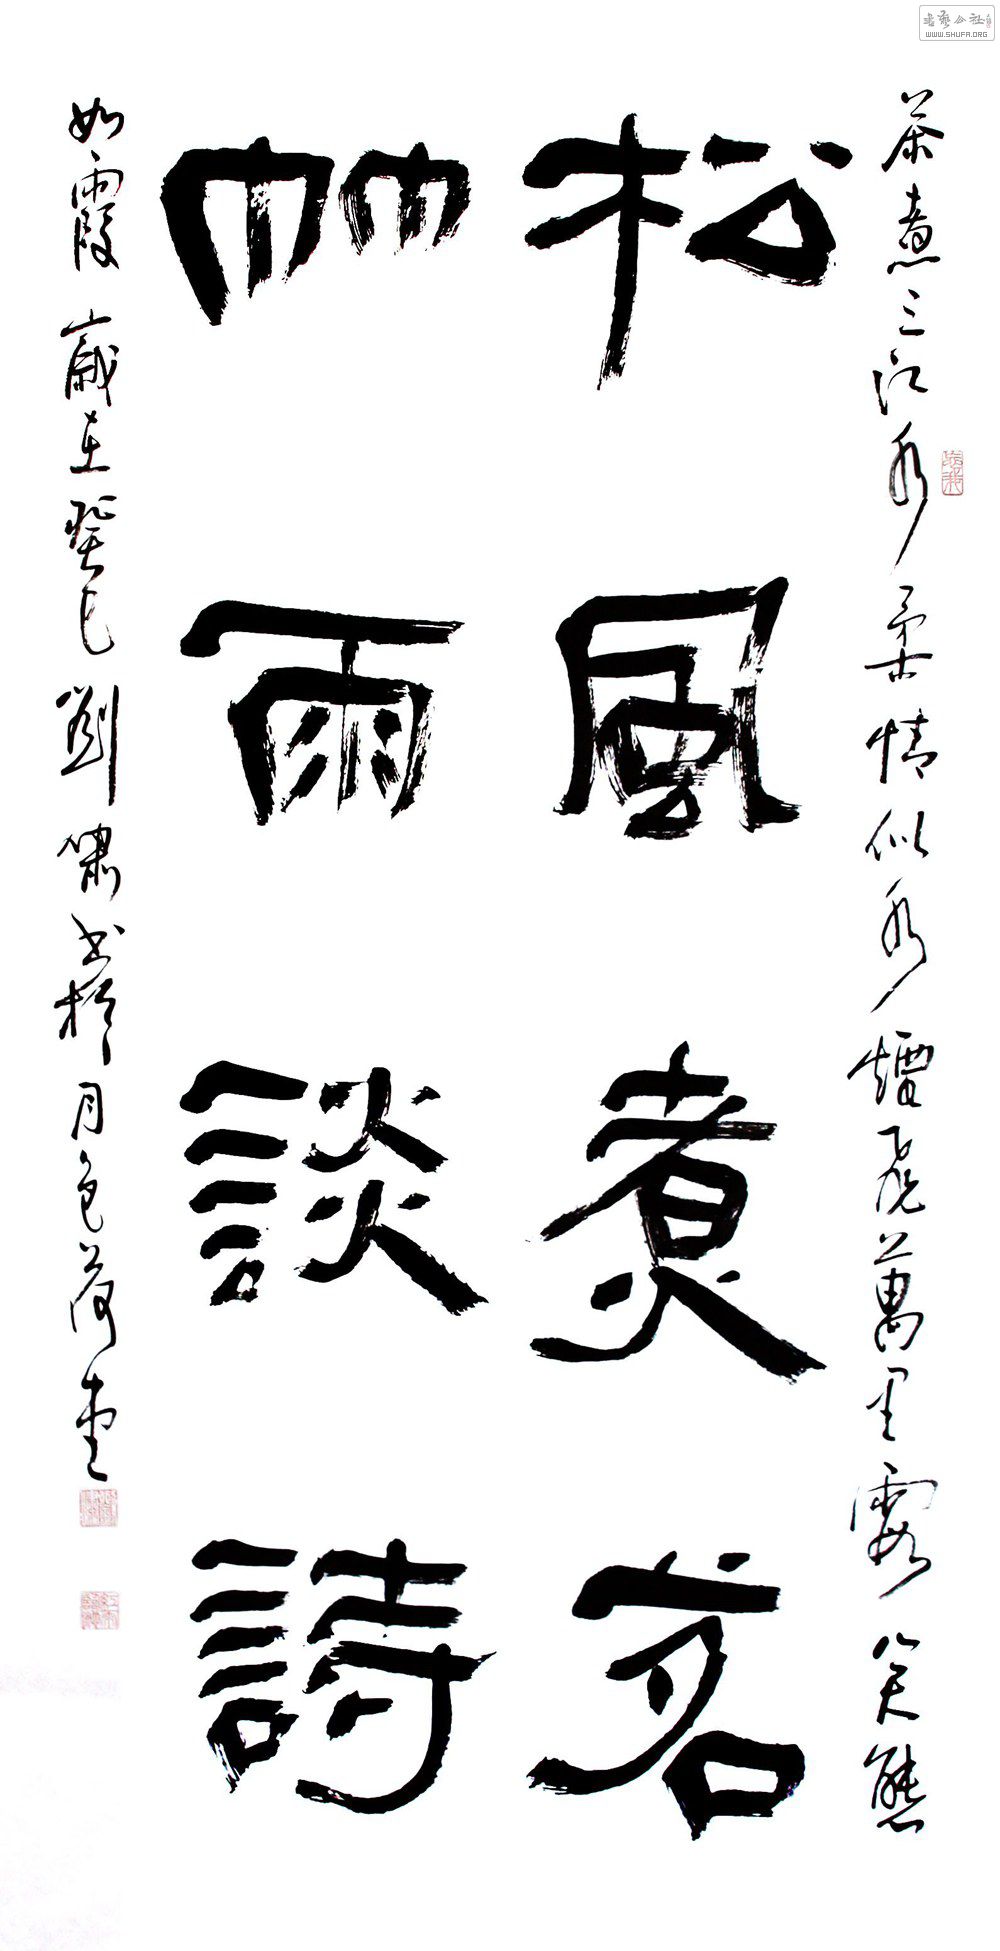 茶煮三江水柔情似水爐飛萬里霞笑態
松風煮茗
竹雨談詩
如霞歲在癸巳劉嘯書於月色荷堂
書藝公社
WWW.SHUFA.ORG